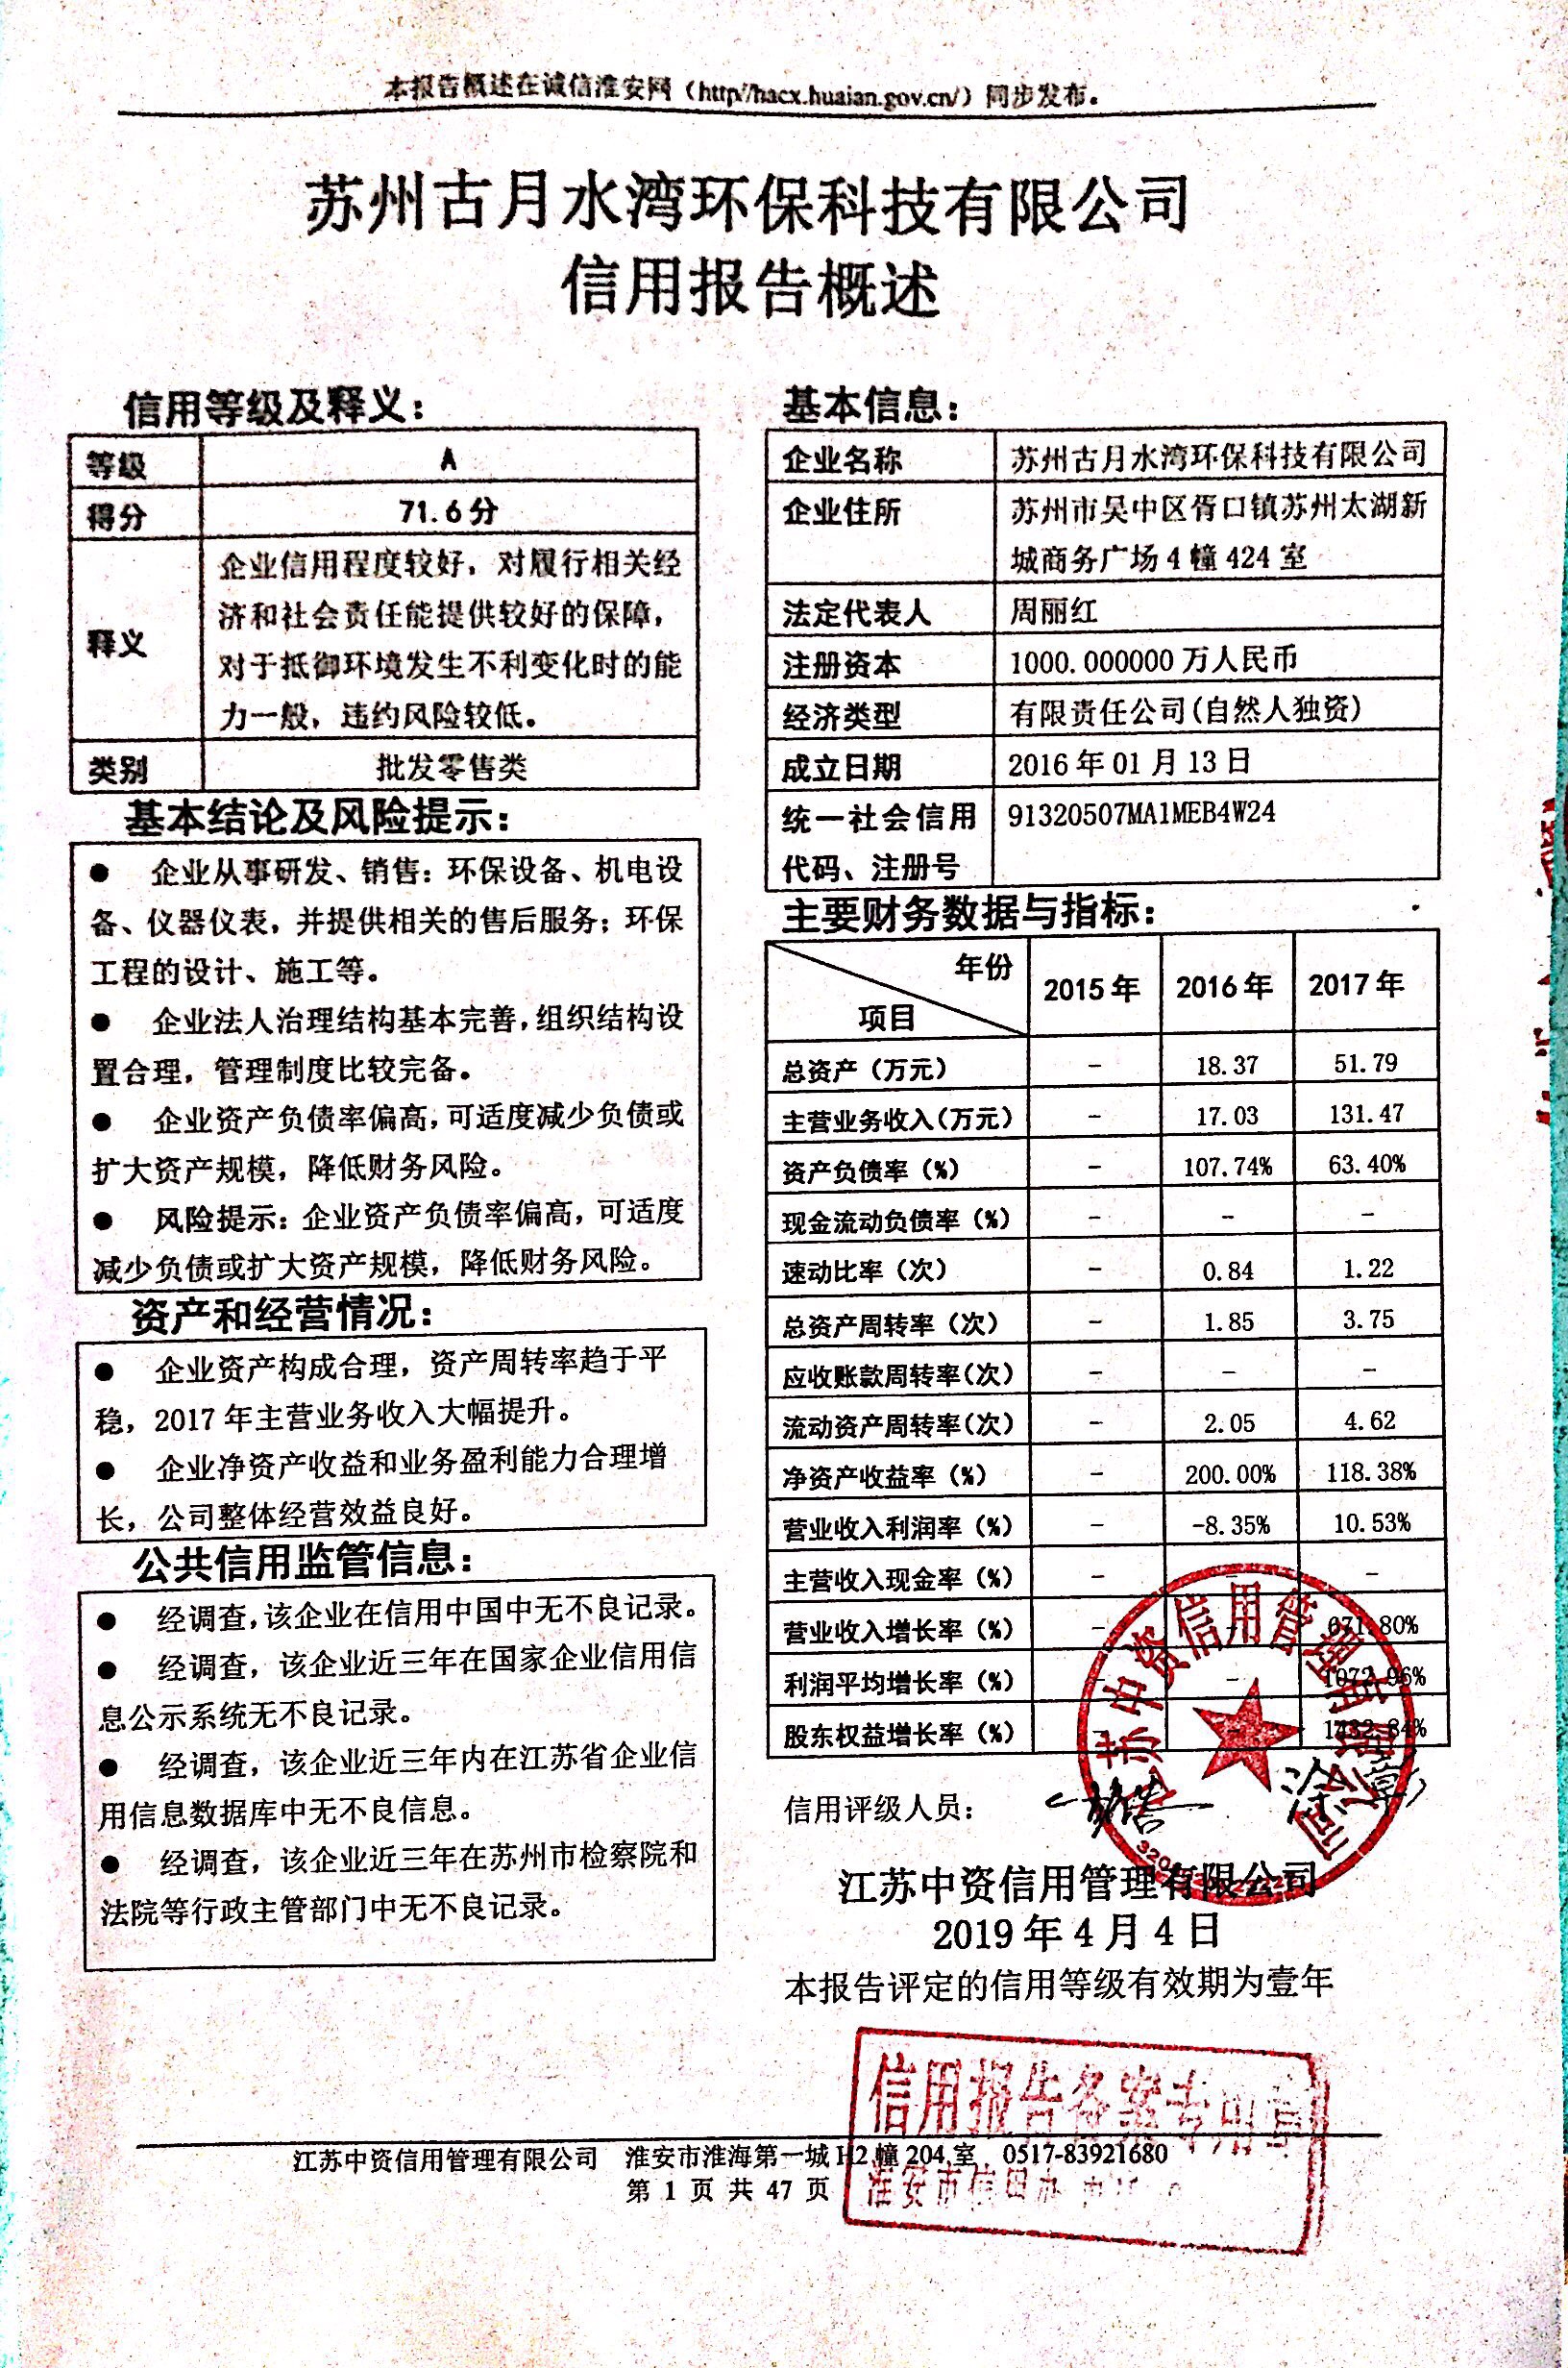 本报告概述在诚信淮安网（http//hacx.huaian.gov.cn/）同步发布。
苏州古月水湾环保科技有限公司
信用报告概述
信用等级及释义：
等级 A
得分 71.6分
释义
企业信用程度较好，对履行相关经
济和社会责任能提供较好的保障，
对于抵御环境发生不利变化时的能
力一般，违约风险较低。
类别 批发零售类
基本结论及风险提示：
● 企业从事研发、销售：环保设备、机电设
备、仪器仪表，并提供相关的售后服务；环保
工程的设计、施工等。
● 企业法人治理结构基本完善，组织结构设
置合理，管理制度比较完备。
● 企业资产负债率偏高，可适度减少负债或
扩大资产规模，降低财务风险。
● 风险提示：企业资产负债率偏高，可适度
减少负债或扩大资产规模，降低财务风险。
资产和经营情况：
● 企业资产构成合理，资产周转率趋于平
稳，2017年主营业务收入大幅提升。
● 企业净资产收益和业务盈利能力合理增
长，公司整体经营效益良好。
公共信用监管信息：
● 经调查，该企业在信用中国中无不良记录。
● 经调查，该企业近三年在国家企业信用信
息公示系统无不良记录。
● 经调查，该企业近三年内在江苏省企业信
用信息数据库中无不良信息。
● 经调查，该企业近三年在苏州市检察院和
法院等行政主管部门中无不良记录。
基本信息：
企业名称 苏州古月水湾环保科技有限公司
企业住所 苏州市吴中区胥口镇苏州太湖新
城商务广场4幢424室
法定代表人 周丽红
注册资本 1000.000000万人民币
经济类型 有限责任公司(自然人独资)
成立日期 2016年01月13日
统一社会信用 91320507MA1MEB4W24
代码、注册号
主要财务数据与指标：
年份
项目 2015年 2016年 2017年
总资产（万元） - 18.37 51.79
主营业务收入(万元) - 17.03 131.47
资产负债率（%） - 107.74% 63.40%
现金流动负债率（%） - - -
速动比率（次） - 0.84 1.22
总资产周转率（次） - 1.85 3.75
应收账款周转率(次) - - -
流动资产周转率(次) - 2.05 4.62
净资产收益率（%） - 200.00% 118.38%
营业收入利润率（%） - -8.35% 10.53%
主营收入现金率（%） - - -
营业收入增长率（%） - - 671.80%
利润平均增长率（%） - - 1072.96%
股东权益增长率（%） - - 1432.84%
江苏中资信用管理有限公司
信用评级人员：
江苏中资信用管理有限公司
2019年4月4日
本报告评定的信用等级有效期为壹年
信用报告备案专用章
淮安市信用办
江苏中资信用管理有限公司 淮安市淮海第一城H2幢204室 0517-83921680
第 1 页 共 47 页